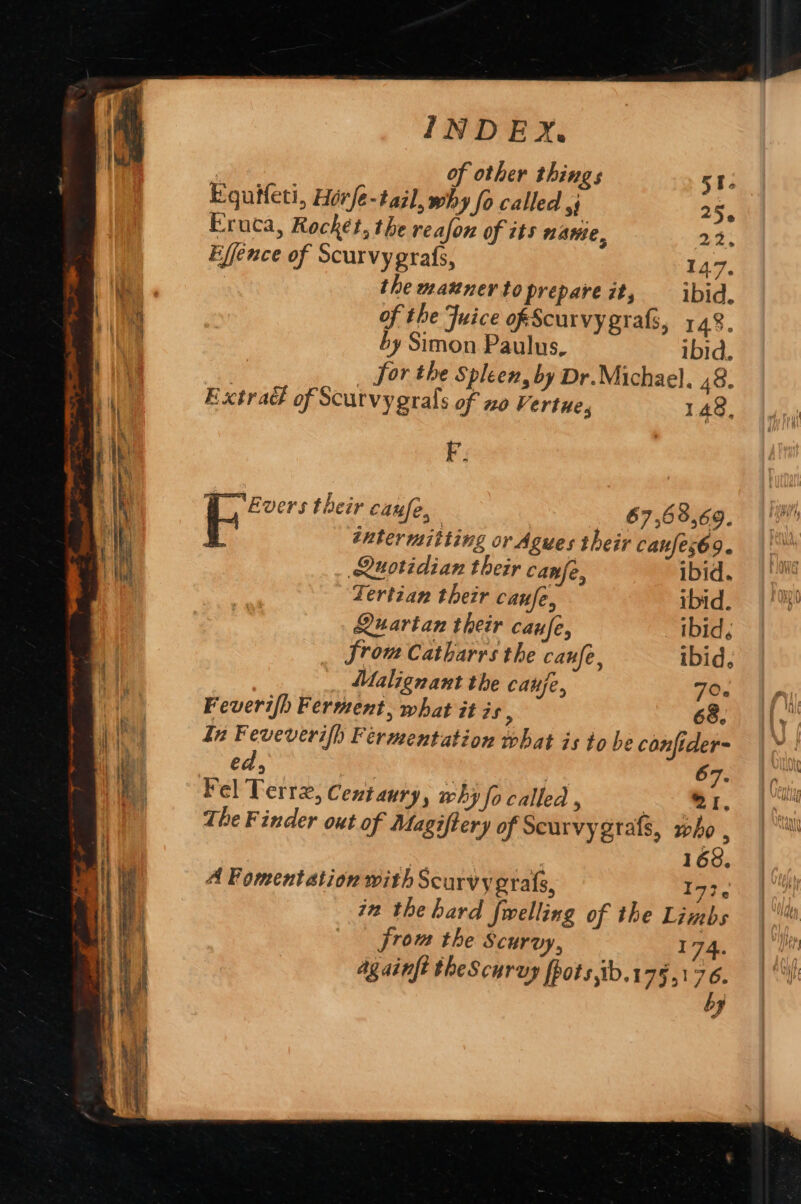 INDEX.
of other things 51.
Equiſeti, Horſe-tail, why ſo called, 25.
Eruca, Rocket, the reaſon of its name, 22.
Eſſence of Scurvygraſs, 147.
the manner to prepare it, ibid.
of the Juice of Scurvygraſs, 148.
by Simon Paulus. ibid.
for the Spleen, by Dr. Michael. 48.
Extract of Scurvygraſs of no Vertue, 148.
F.
FEvers their cauſe, 67,68,69.
intermitting or Agues their cauſe,69.
Quotidian their cauſe, ibid.
Tertian their cauſe, ibid.
Quartan their cauſe, ibid.
from Catharrs the cauſe, ibid.
Malignant the cauſe, 70.
Feveriſh Ferment, what it is, 68.
In Feveveriſh Fermentation what is to be conſider-
ed, 67.
Fel Terræ, Centaury, why ſo called, 21.
The Finder out of Magiſtery of Scurvygraſs, who,
168.
A Fomentation with Scurvygraſs, 172.
in the hard ſwelling of the Limbs
from the Scurvy, 174.
againſt the Scurvy ſpots, ib. 175,176.
by